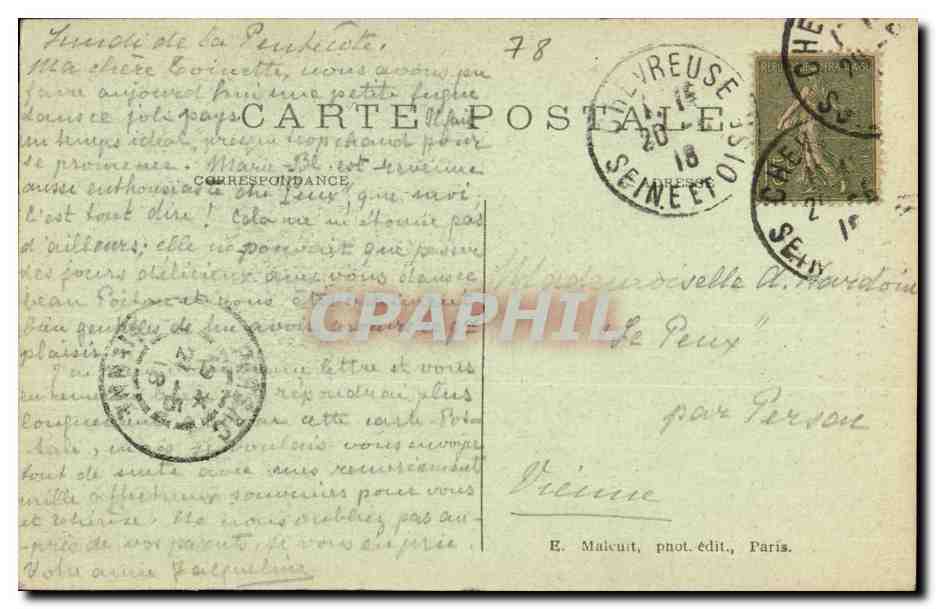 Lundi de la Pentecôte.
78
Ma chère Toinette, nous avons pu
faire aujourd'hui une petite fugue
dans ce joli pays. Il fait
CARTE POSTALE
un temps idéal, presque trop chaud pour
se promener. Marie-Bl. est revenue
aussi enthousiaste du "Peux" que moi
CORRESPONDANCE
ADRESSE
C'est tout dire ! Cela ne m'étonne pas
d'ailleurs; elle ne pouvait que passer
des jours délicieux avec vous dans ce
beau Poitou et vous
bien gentilles de lui avoir
plaisir.
lettre et vous
répondrai plus
longuement cette carte Pos-
tale, mais je voulais vous envoyer
tout de suite avec mes remerciements
mille affectueux souvenirs pour vous
et Thérèse. Ne nous oubliez pas au-
-près de vos parents, je vous en prie.
Votre amie Jacqueline
CHEVREUSE
20
18
SEINE ET OISE
CHEV
SEIN
Mademoiselle A. Hardoin
"Le Peux"
par Persac
Vienne
CPRAPHIL
E. Malcuit, phot. édit., Paris.